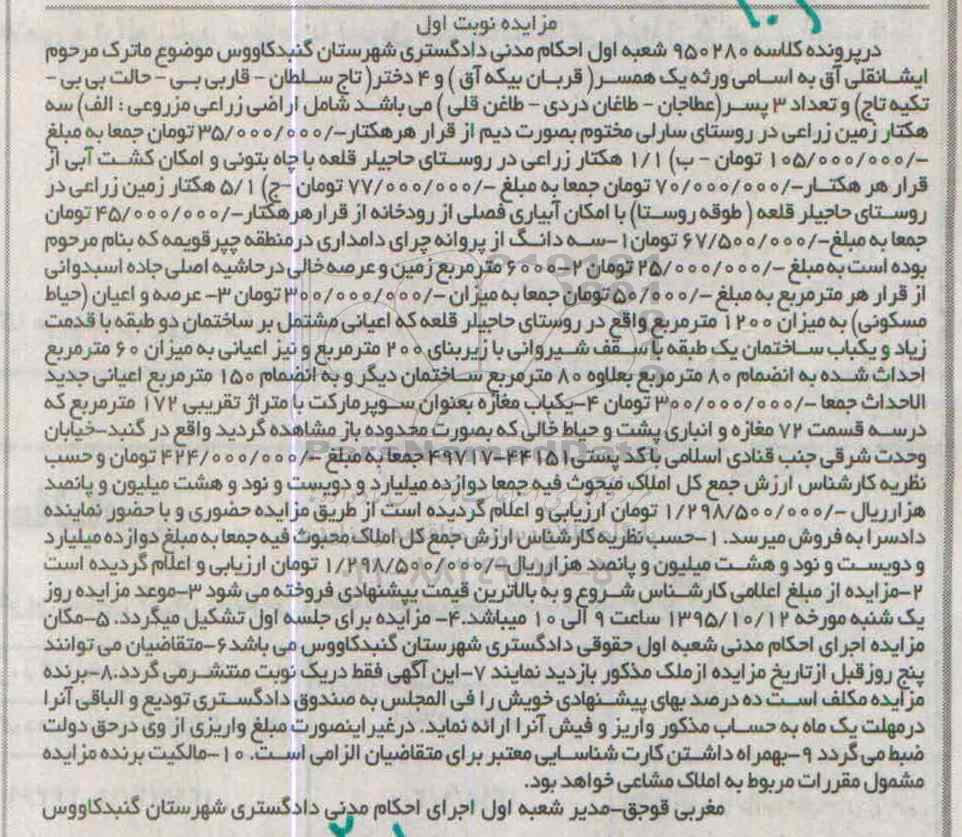 مزایده نوبت اول
درپرونده کلاسه ۹۵۰۲۸۰ شعبه اول احکام مدنی دادگستری شهرستان گنبدکاووس موضوع ماترک مرحوم
ایشانقلی آق به اسامی ورثه یک همسر( قربان بیکه آق ) و ۴ دختر( تاج سلطان - قاربی بی - حالت بی بی -
تکیه تاج) و تعداد ۳ پسر(عطاجان - طاغان دردی - طاغن قلی ) می باشد شامل اراضی زراعی مزروعی : الف) سه
هکتار زمین زراعی در روستای سارلی مختوم بصورت دیم از قرار هرهکتار-/۳۵/۰۰۰/۰۰۰ تومان جمعا به مبلغ
-/۱۰۵/۰۰۰/۰۰۰ تومان - ب) ۱/۱ هکتار زراعی در روستای حاجیلر قلعه با چاه بتونی و امکان کشت آبی از
قرار هر هکتار-/۷۰/۰۰۰/۰۰۰ تومان جمعا به مبلغ -/۷۷/۰۰۰/۰۰۰ تومان -ج) ۵/۱ هکتار زمین زراعی در
روستای حاجیلر قلعه ( طوقه روستا) با امکان آبیاری فصلی از رودخانه از قرارهرهکتار-/۴۵/۰۰۰/۰۰۰ تومان
جمعا به مبلغ-/۶۷/۵۰۰/۰۰۰ تومان۱-سه دانگ از پروانه چرای دامداری درمنطقه چپرقویمه که بنام مرحوم
بوده است به مبلغ -/۲۵/۰۰۰/۰۰۰ تومان ۲-۶۰۰۰ مترمربع زمین و عرصه خالی درحاشیه اصلی جاده اسبدوانی
از قرار هر مترمربع به مبلغ -/۵۰/۰۰۰ تومان جمعا به میزان -/۳۰۰/۰۰۰/۰۰۰ تومان ۳- عرصه و اعیان (حیاط
مسکونی) به میزان ۱۲۰۰ مترمربع واقع در روستای حاجیلر قلعه که اعیانی مشتمل بر ساختمان دو طبقه با قدمت
زیاد و یکباب ساختمان یک طبقه با سقف شیروانی با زیربنای ۲۰۰ مترمربع و نیز اعیانی به میزان ۶۰ مترمربع
احداث شده به انضمام ۸۰ مترمربع بعلاوه ۸۰ مترمربع ساختمان دیگر و به انضمام ۱۵۰ مترمربع اعیانی جدید
الاحداث جمعا -/۳۰۰/۰۰۰/۰۰۰ تومان ۴-یکباب مغازه بعنوان سوپرمارکت با متراژ تقریبی ۱۷۲ مترمربع که
درسه قسمت ۷۲ مغازه و انباری پشت و حیاط خالی که بصورت محدوده باز مشاهده گردید واقع در گنبد-خیابان
وحدت شرقی جنب قنادی اسلامی با کد پستی۴۴۱۵۱-۴۹۷۱۷ جمعا به مبلغ -/۴۲۴/۰۰۰/۰۰۰ تومان و حسب
نظریه کارشناس ارزش جمع کل املاک مبحوث فیه جمعا دوازده میلیارد و دویست و نود و هشت میلیون و پانصد
هزارریال -/۱/۲۹۸/۵۰۰/۰۰۰ تومان ارزیابی و اعلام گردیده است از طریق مزایده حضوری و با حضور نماینده
دادسرا به فروش میرسد. ۱-حسب نظریه کارشناس ارزش جمع کل املاک محبوث فیه جمعا به مبلغ دوازده میلیارد
و دویست و نود و هشت میلیون و پانصد هزارریال-/۱/۲۹۸/۵۰۰/۰۰۰ تومان ارزیابی و اعلام گردیده است
۲-مزایده از مبلغ اعلامی کارشناس شروع و به بالاترین قیمت پیشنهادی فروخته می شود ۳-موعد مزایده روز
یک شنبه مورخه ۱۳۹۵/۱۰/۱۲ ساعت ۹ الی ۱۰ میباشد.۴- مزایده برای جلسه اول تشکیل میگردد. ۵-مکان
مزایده اجرای احکام مدنی شعبه اول حقوقی دادگستری شهرستان گنبدکاووس می باشد۶-متقاضیان می توانند
پنج روزقبل ازتاریخ مزایده ازملک مذکور بازدید نمایند ۷-این آگهی فقط دریک نوبت منتشرمی گردد.۸-برنده
مزایده مکلف است ده درصد بهای پیشنهادی خویش را فی المجلس به صندوق دادگستری تودیع و الباقی آنرا
درمهلت یک ماه به حساب مذکور واریز و فیش آنرا ارائه نماید. درغیراینصورت مبلغ واریزی از وی درحق دولت
ضبط می گردد ۹-بهمراه داشتن کارت شناسایی معتبر برای متقاضیان الزامی است. ۱۰-مالکیت برنده مزایده
مشمول مقررات مربوط به املاک مشاعی خواهد بود.
مغربی قوجق-مدیر شعبه اول اجرای احکام مدنی دادگستری شهرستان گنبدکاووس